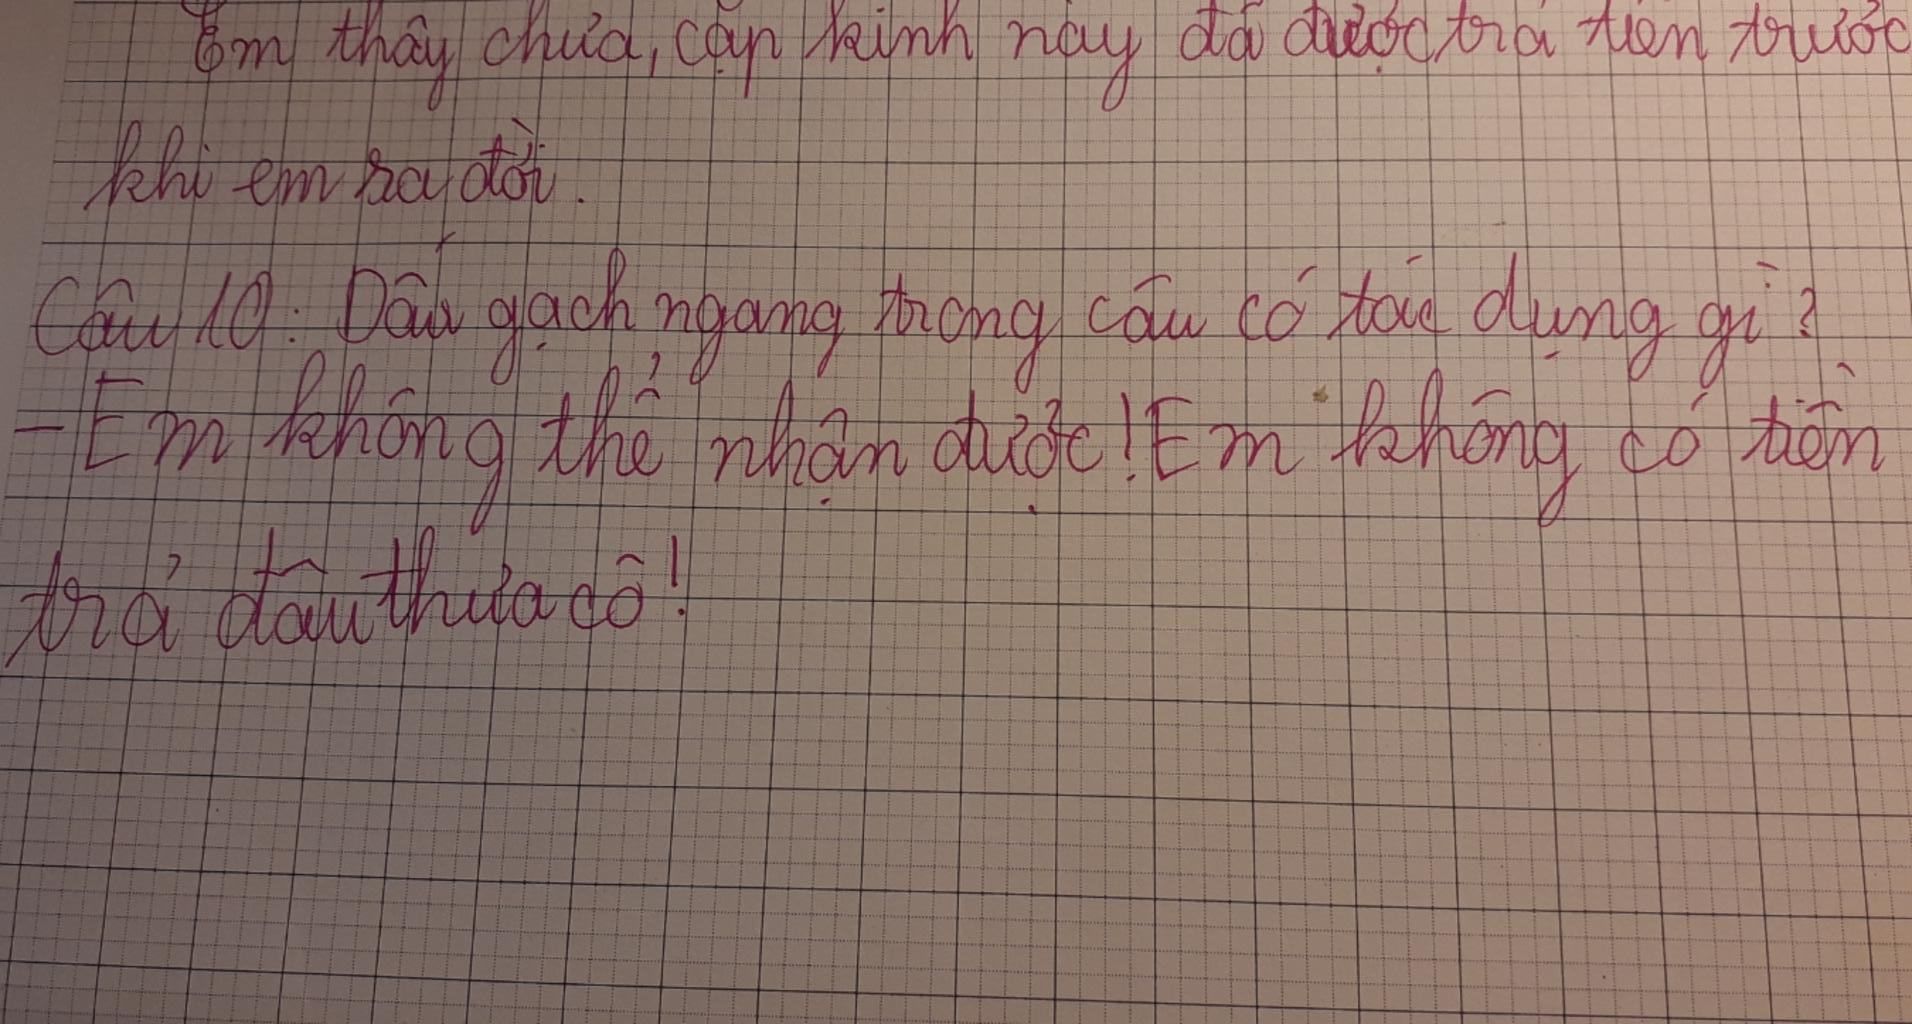 Em thấy chưa, cặp kính này đã được trả tiền trước
khi em ra đời.
Câu 10: Dấu gạch ngang trong câu có tác dụng gì?
- Em không thể nhận được! Em không có tiền
trả đâu thưa cô!